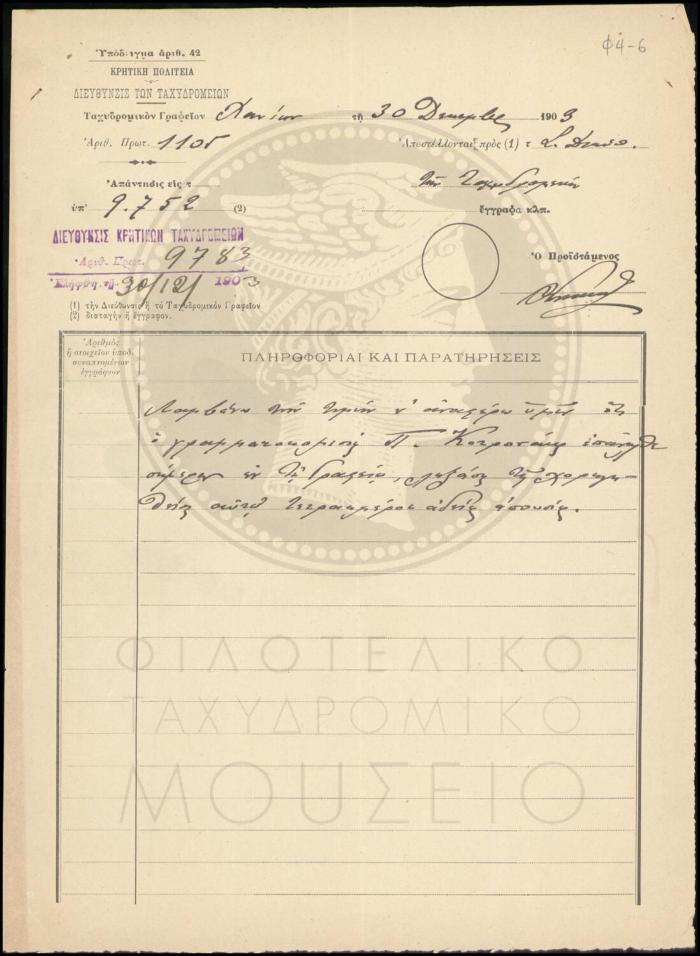 Φ4-6
Ὑπόδειγμα ἀριθ. 42
ΚΡΗΤΙΚΗ ΠΟΛΙΤΕΙΑ
ΔΙΕΥΘΥΝΣΙΣ ΤΩΝ ΤΑΧΥΔΡΟΜΕΙΩΝ
Ταχυδρομικὸν Γραφεῖον Χανίων τῇ 30 Δεκεμβρίου 1903
Ἀριθ. Πρωτ. 1105
Ἀποστέλλονται πρὸς (1) τ
Ἀπάντησις εἰς τ
ὑπ' 9.752 (2)
ἔγγραφα κλπ.
ΔΙΕΥΘΥΝΣΙΣ ΚΡΗΤΙΚΩΝ ΤΑΧΥΔΡΟΜΕΙΩΝ
Ἀριθ. Πρωτ. 9783
Ἐλήφθη τῇ 30/12/1903
Ὁ Προϊστάμενος
(1) τὴν Διεύθυνσιν ἢ τὸ Ταχυδρομικὸν Γραφεῖον
(2) διαταγὴν ἢ ἔγγραφον.
Ἀριθμὸς
ἢ στοιχεῖον ὑποδ.
συναπτομένων
ἐγγράφων
ΠΛΗΡΟΦΟΡΙΑΙ ΚΑΙ ΠΑΡΑΤΗΡΗΣΕΙΣ
Λαμβάνω τὴν τιμὴν ν' ἀναφέρω ὑμῖν ὅτι
ὁ γραμματοκομιστὴς Π. ἐπανῆλθε
σήμερον ἐν τῷ Γραφείῳ, ληξάσης τῆς χορηγη-
θείσης αὐτῷ τετραημέρου ἀδείας ἀπουσίας.
ΦΙΛΟΤΕΛΙΚΟ
ΤΑΧΥΔΡΟΜΙΚΟ
ΜΟΥΣΕΙΟ